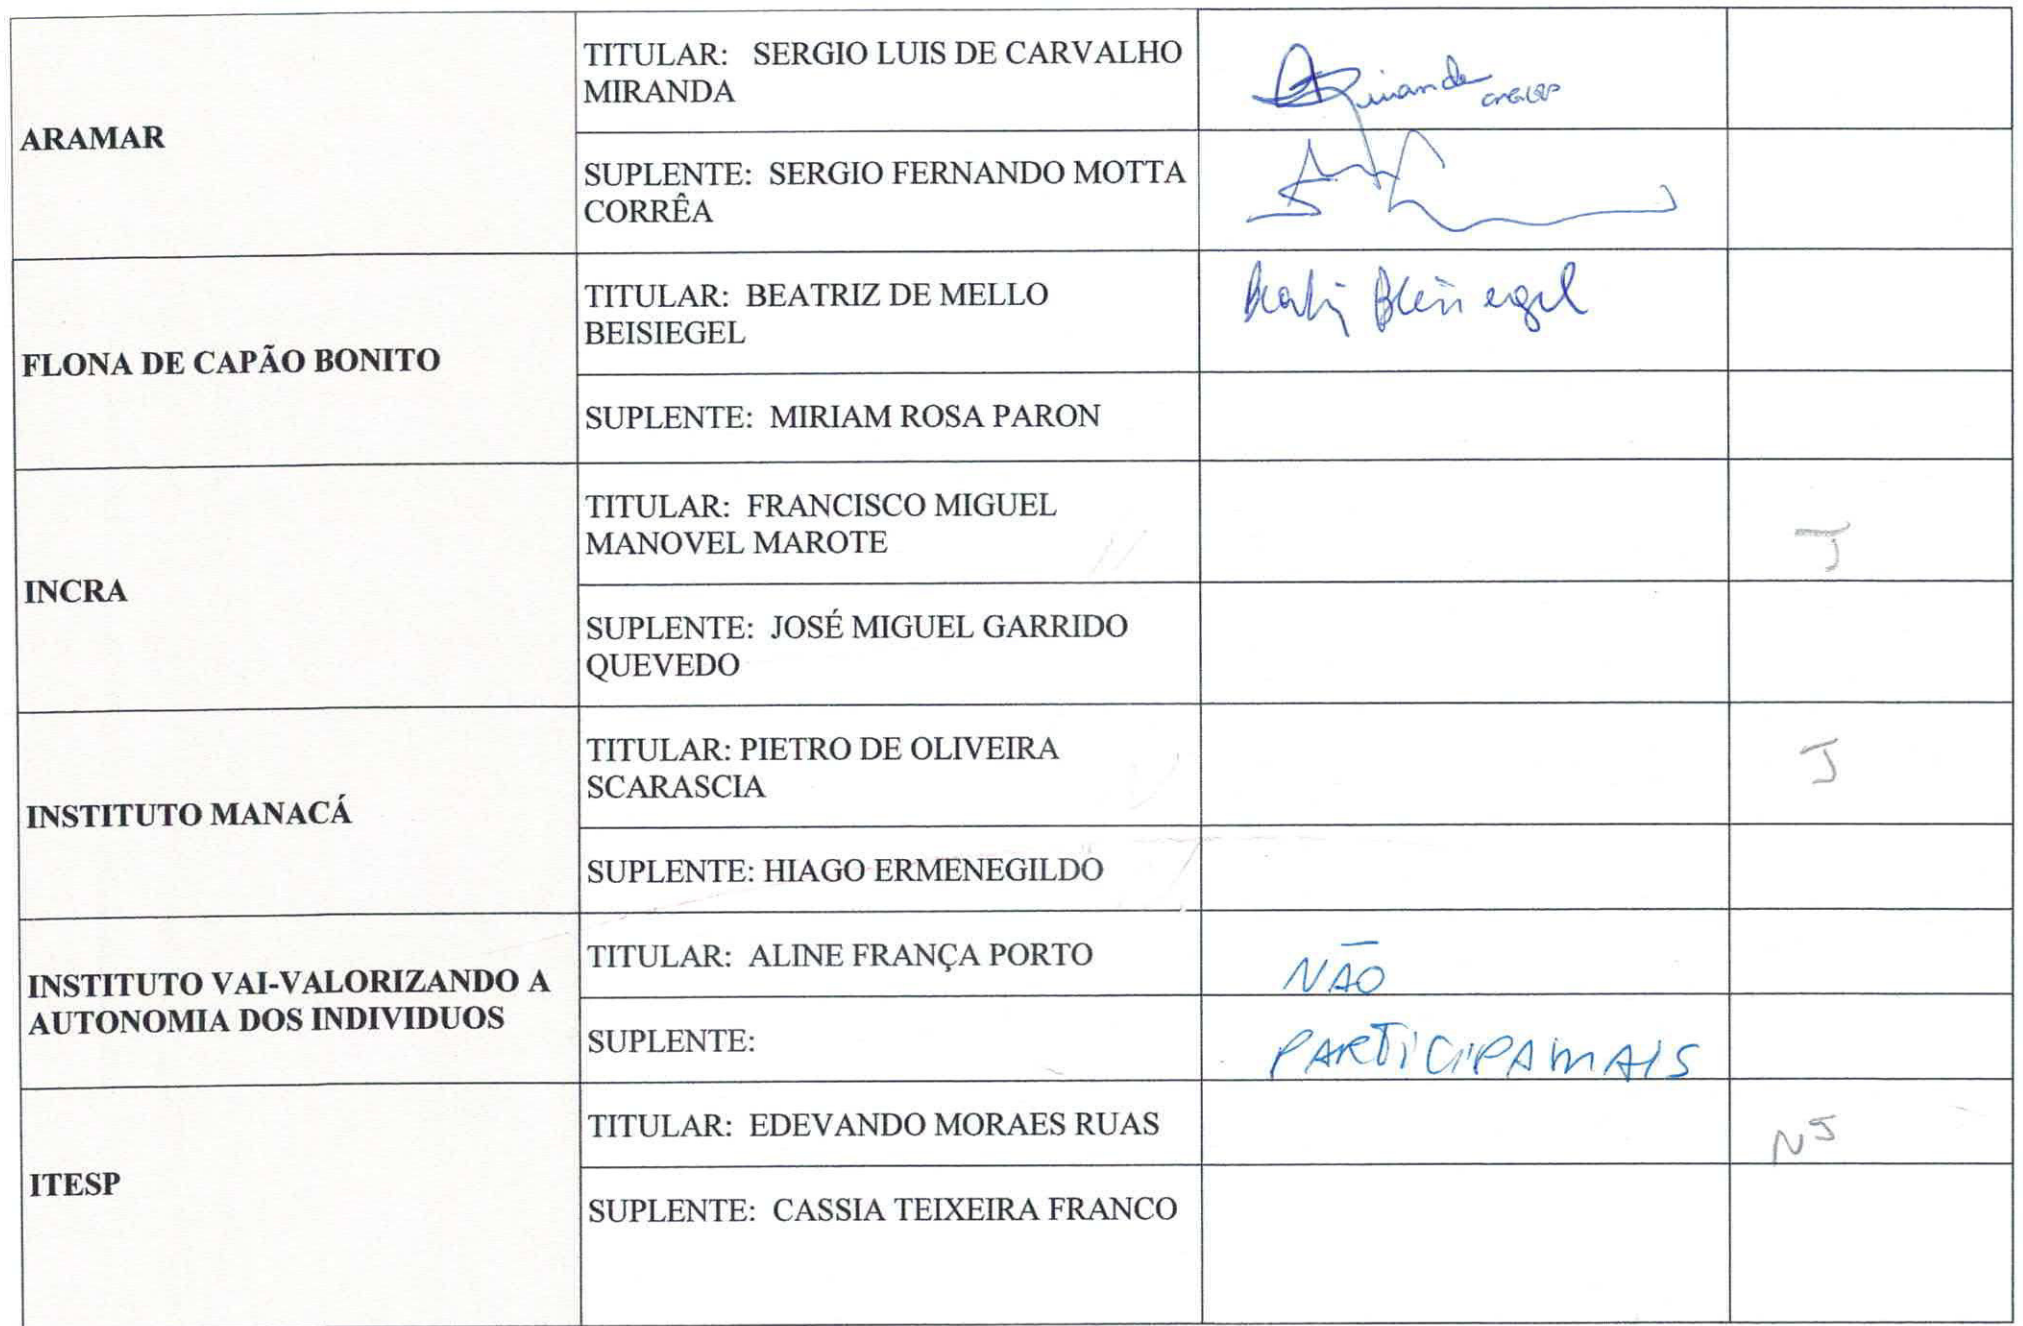 ARAMAR
TITULAR: SERGIO LUIS DE CARVALHO
MIRANDA
SUPLENTE: SERGIO FERNANDO MOTTA
CORRÊA
FLONA DE CAPÃO BONITO
TITULAR: BEATRIZ DE MELLO
BEISIEGEL
SUPLENTE: MIRIAM ROSA PARON
INCRA
TITULAR: FRANCISCO MIGUEL
MANOVEL MAROTE
J
SUPLENTE: JOSÉ MIGUEL GARRIDO
QUEVEDO
INSTITUTO MANACÁ
TITULAR: PIETRO DE OLIVEIRA
SCARASCIA
J
SUPLENTE: HIAGO ERMENEGILDO
INSTITUTO VAI-VALORIZANDO A
AUTONOMIA DOS INDIVIDUOS
TITULAR: ALINE FRANÇA PORTO
NÃO
SUPLENTE:
PARTICIPA MAIS
ITESP
TITULAR: EDEVANDO MORAES RUAS
NJ
SUPLENTE: CASSIA TEIXEIRA FRANCO